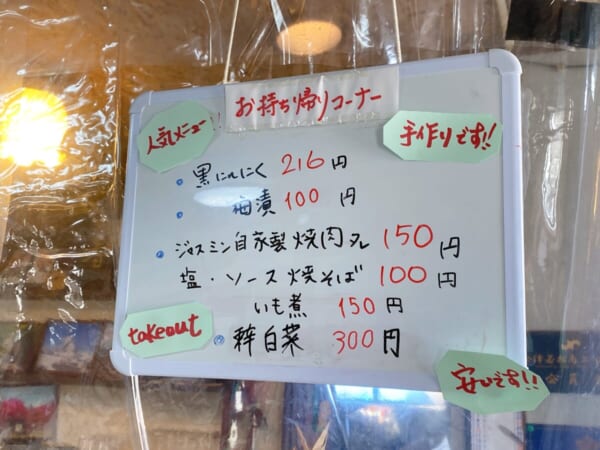 お持ち帰りコーナー
人気メニュー!!
手作りです!!
・黒にんにく 216円
・梅漬 100円
・ジャスミン自家製焼肉タレ 150円
塩・ソース焼そば 100円
いも煮 150円
takeout
・辣白菜 300円
安いです!!